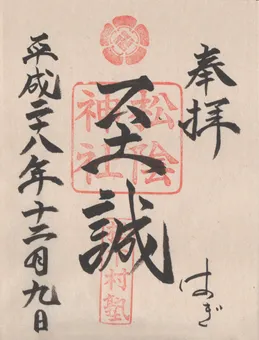 奉拝
はぎ
松陰
神社
至誠
村塾
平成二十八年十二月九日